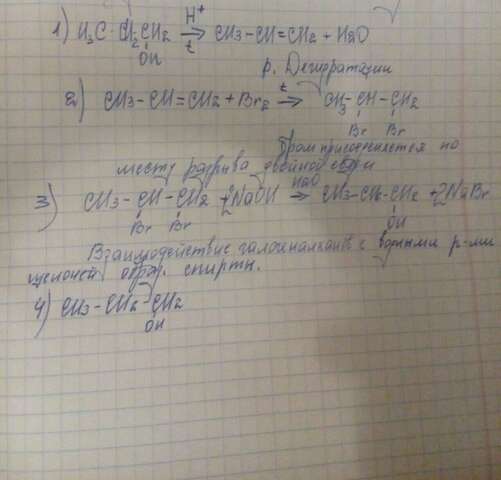 1) H3C - CH2CH2 H+ → t CH3-CH=CH2 + H2O
OH
р. Дегидратации
2) CH3-CH=CH2 + Br2 t → CH3-CH-CH2
Br Br
Бром присоединяется по
месту разрыва двойной связи
3) CH3-CH-CH2 + 2NaOH H2O → CH3-CH-CH2 + 2NaBr
Br Br OH
Взаимодействие галогеналканов с водными р-ми
щелочей обр. спирты.
4) CH3-CH2-CH2
OH